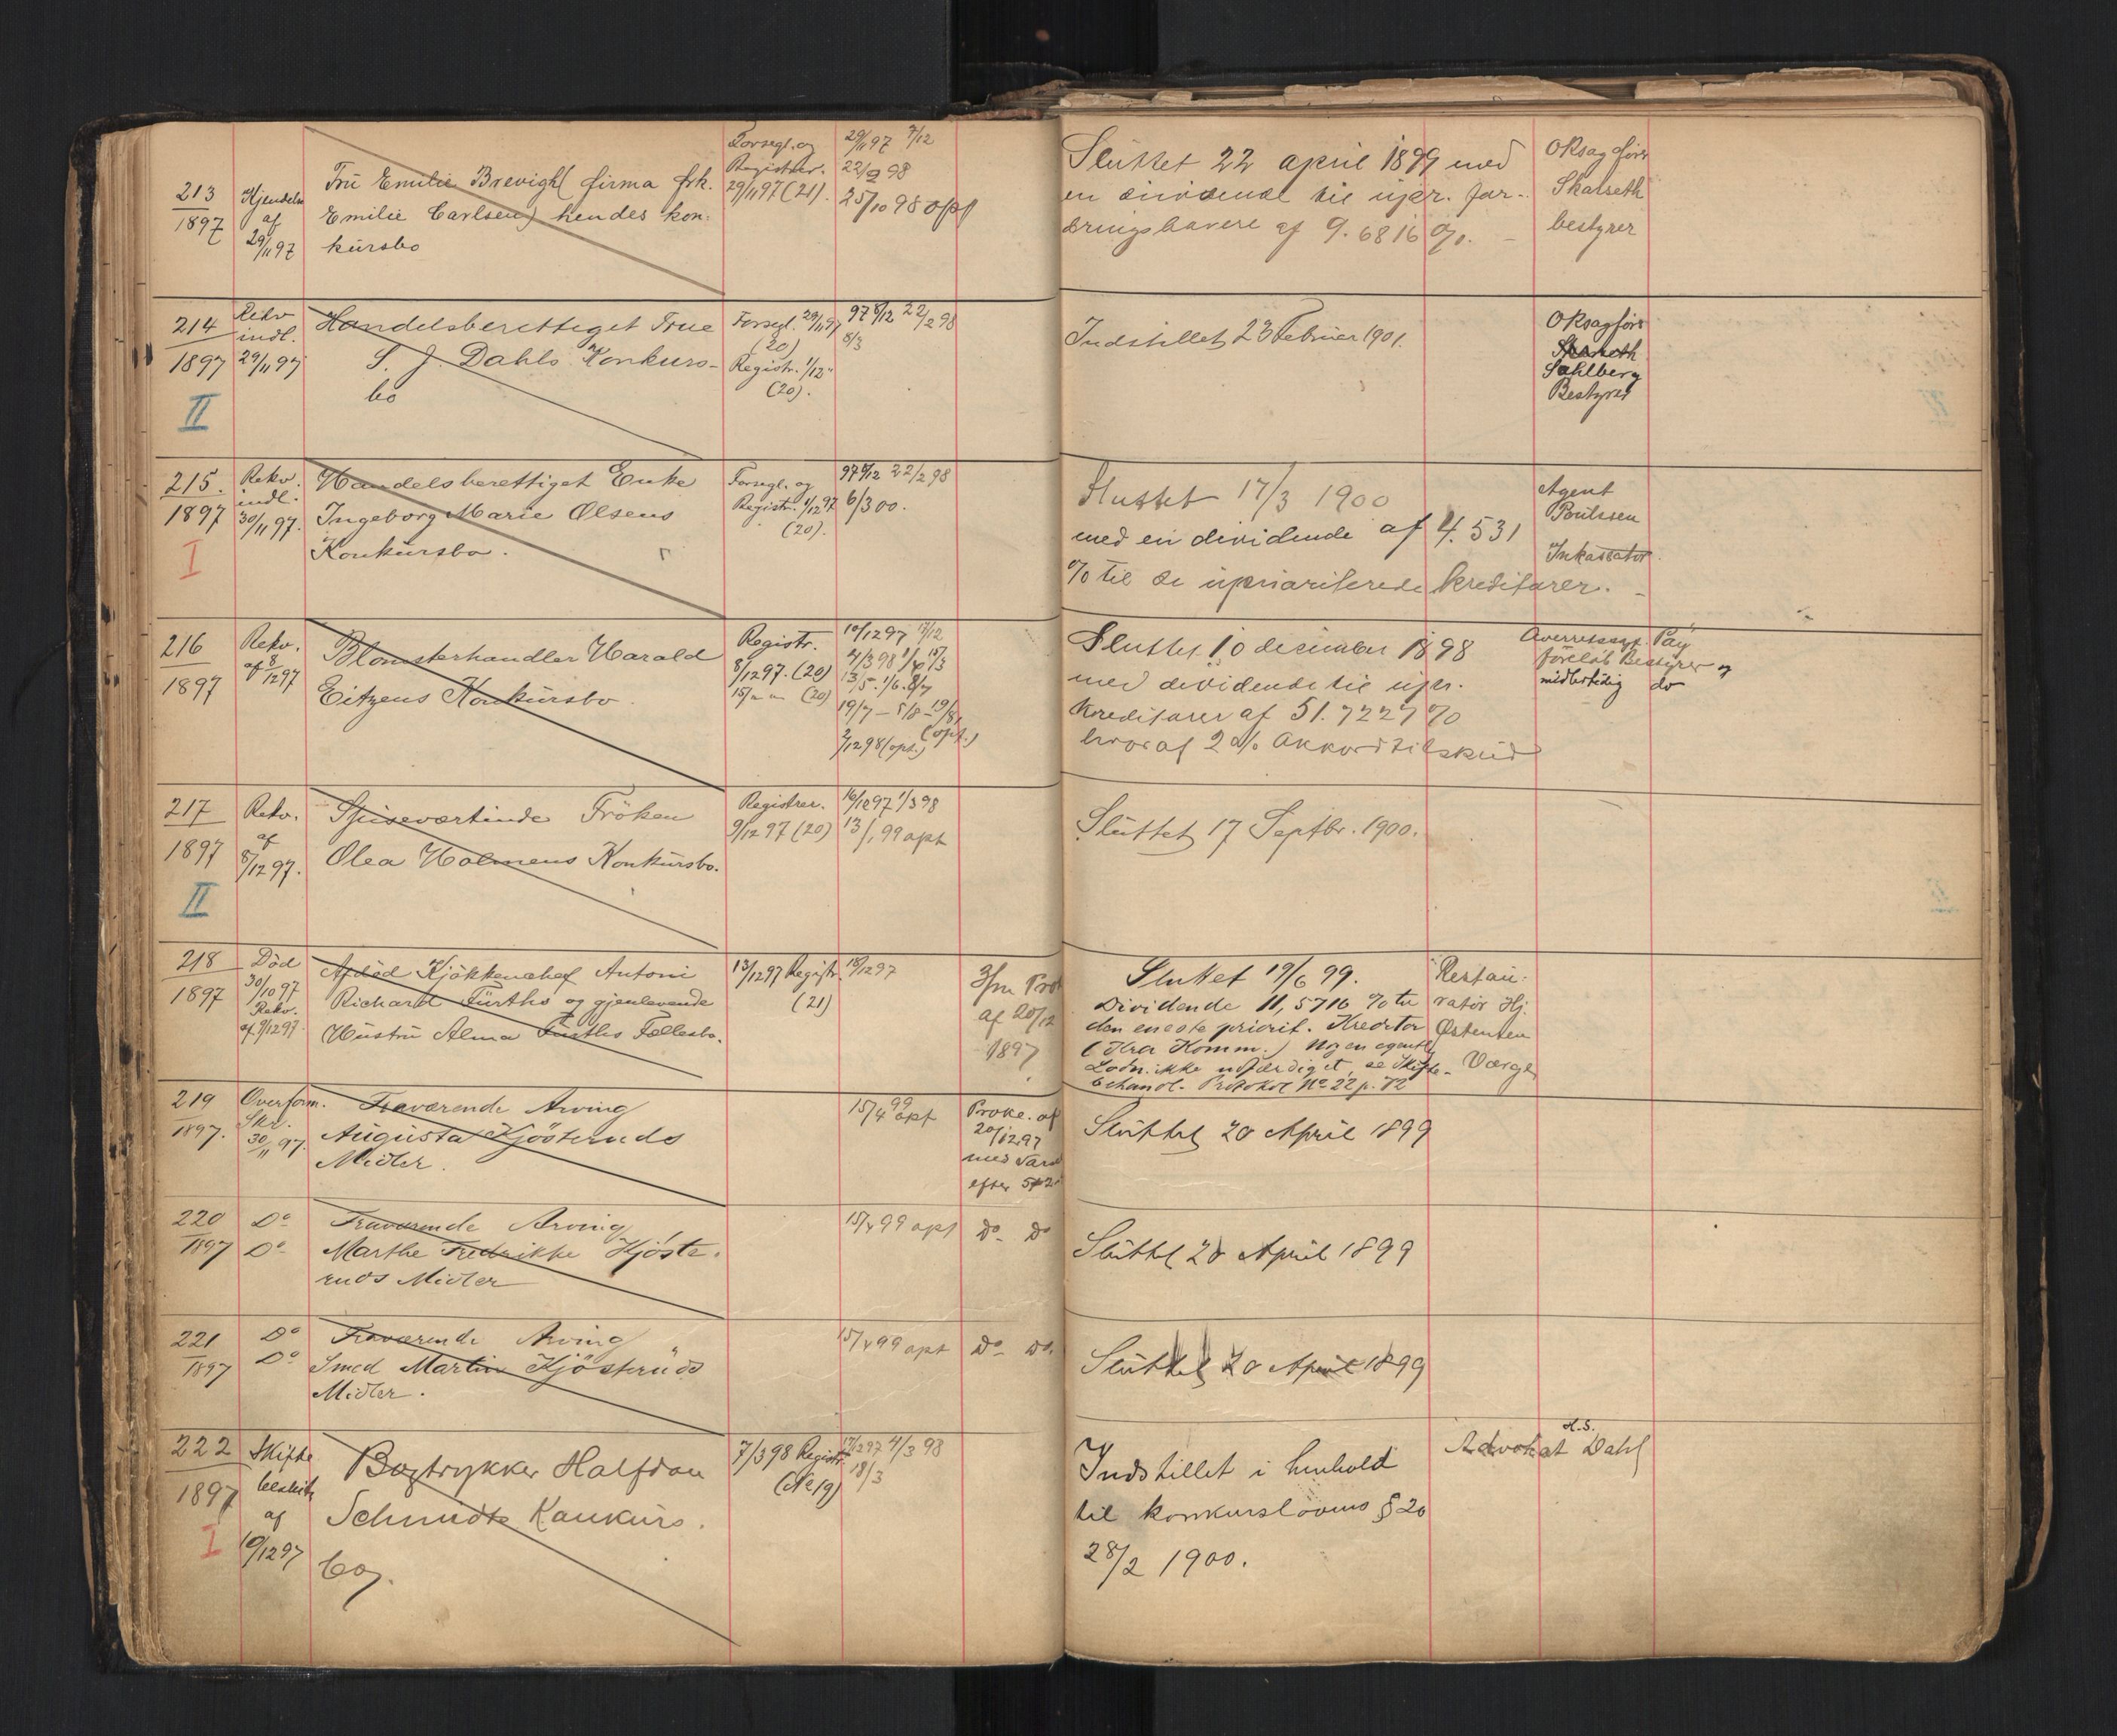 213
1897
Kjendelse
af
29/11 97
Fru Emilie Brevigh( firma frk.
Emilie Carlsen) hendes kon-
kursbo
Forsegl. og
Registrer.
29/11 97 (21).
29/11 97 7/12
22/2 98
25/10 98 opf
Sluttet 22 april 1899 med
en dividende til upr. for-
dringshavere af 9.6816 %.
ORsagfører
Skarseth
bestyrer
214
1897
II
Rekv
indl.
29/11 97
Handelsberettiget Frue
S. J. Dahls Konkurs-
bo
Forsegl. 29/11 97
(20)
Registr. 1/12
(20).
97 8/12 22/2 98
8/3
Indstillet 23 Februar 1901.
ORsagfører
Sahlberg
Bestyrer
215.
1897
I
Rekv.
indl.
30/11 97.
Handelsberettiget Enke
Ingeborg Marie Olsens
Konkursbo.
Forsegl. og
Registr. 1/12 97
(20).
97 8/12 22/2 98
6/3 00.
Sluttet 17/3 1900
med en dividende af 4.531
% til de upriariterede kreditorer.
Agent
Poulssen
Inkassator.
216
1897
Rekv.
af 8/12 97
Blomsterhandler Harald
Eitzens Konkursbo.
Registr.
8/12 97. (20)
15/ " " (20)
10/12 97 17/12
4/3 98 1/4 15/3
13/5. 1/6. 8/7
19/7 – 5/8 – 19/8
(opt.)
2/12 98 (opt.)
Sluttet 10 december 1898
med dividende til upr.
Kreditorer af 51.7227 %
hvoraf 2 % Akkordtilskud
Overretssagf. Pay
foreløb Bestyrer og
midlertidig do
217
1897
II
Rekv.
af
8/12 97.
Spiseværtinde Fröken
Olea Holmens Konkursbo.
Registrer.
9/12 97 (20)
16/12 97 1/3 98
13/1 99 opt
Sluttet 17 Septbr. 1900.
218
1897
Död
30/10 97
Rekv.
af 9/12 97
Afdöd Kjökkenchef Antoni
Richard Fürths og gjenlevende
Hustru Alma Fürths Fællesbo.
13/12 97 Registr.
(21)
18/12 97
3/m Prok
af 20/12
1897
Sluttet 19/6 99.
Dividende 11,5716 % til
den eneste priorit. Kreditor
(Kra Komm.) Nogen egentlig
Lodn. ikke udfærdiget, se Skifte-
behandl. Protokol No 22 p. 72
Restau-
ratör Hj.
Østensen
Værge
219
1897.
Overform.
Skr.
30/11 97.
Fraværende Arving
Augusta Kjösteruds
Midler.
15/4 99
opt
Prokl. af
20/12 97
med Varsel
Sluttet 20 April 1899
220
1897
Do
Do
Fraværende Arving
Marthe Fredrikke Kjöste-
ruds Midler
15/4 99 opt
Do Do
Sluttet 20 April 1899
221
1897
Do
Do
Fraværende Arving
Smed Martin Kjösteruds
Midler.
15/4 99 opt
Do Do.
Sluttet 20 April 1899
222
1897
I
Skifte
beslutn
af
10/12 97
Bogtrykker Halfdan
Schmidts Konkurs.
bo.
7/3 98 Registr.
(No 19)
17/12 97 4/3 98
18/3
Indstillet i henhold
til konkurslovens § 20
28/2 1900.
H.S.
Advokat Dahl